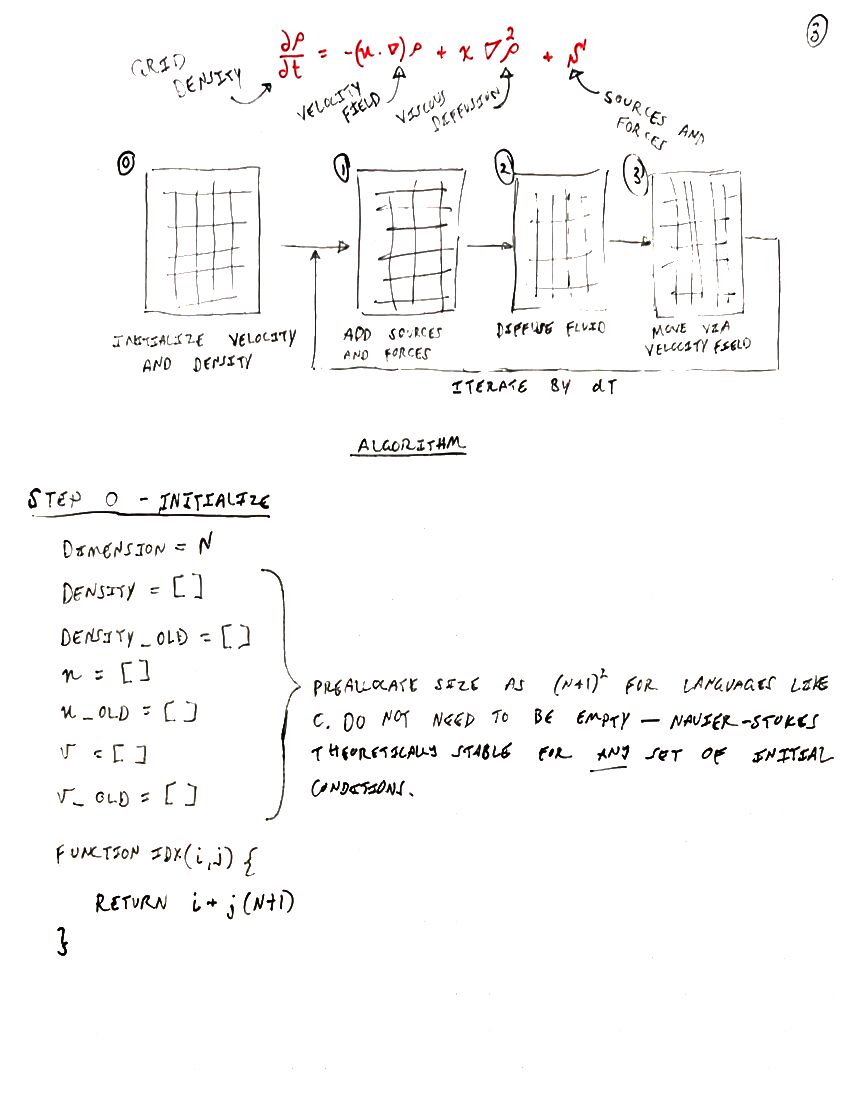 3
∂ρ/∂t = -(u·∇)ρ + x ∇²ρ + S
GRID
DENSITY
VELOCITY
FIELD
VISCOUS
DIFFUSION
SOURCES AND
FORCES
0
1
2
3
INITIALIZE VELOCITY
AND DENSITY
ADD SOURCES
AND FORCES
DIFFUSE FLUID
MOVE VIA
VELOCITY FIELD
ITERATE BY dT
ALGORITHM
STEP 0 - INITIALIZE
DIMENSION = N
DENSITY = []
DENSITY_OLD = []
u = []
u_OLD = []
v = []
v_OLD = []
PREALLOCATE SIZE AS (N+1)² FOR LANGUAGES LIKE
C. DO NOT NEED TO BE EMPTY — NAVIER-STOKES
THEORETICALLY STABLE FOR ANY SET OF INITIAL
CONDITIONS.
FUNCTION IDX(i,j) {
RETURN i + j(N+1)
}